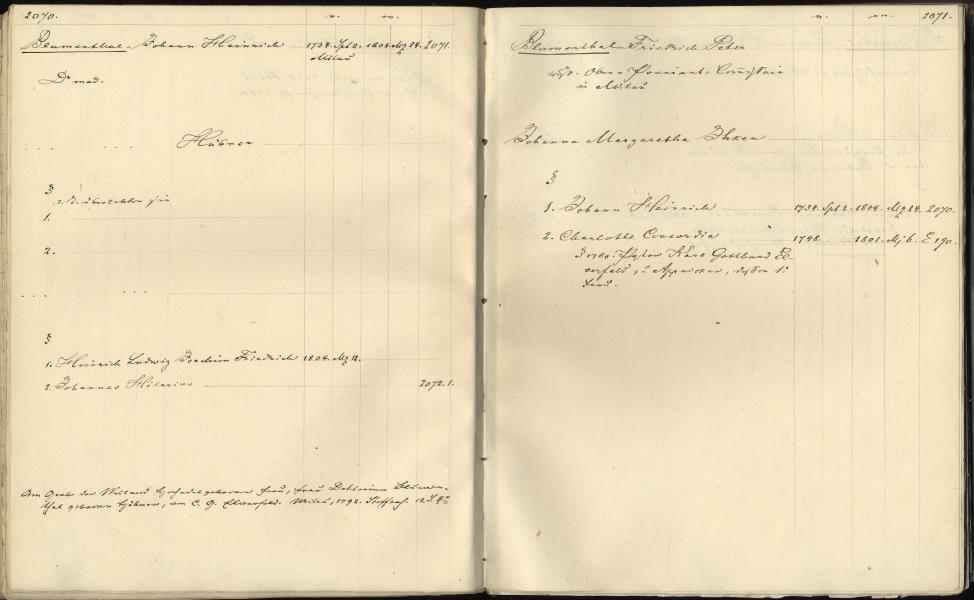 2070. n. m.
Blumenthal - Johann Heinrich 1734. Spt 2. 1804. Mz 24. 2071.
Mitau
Dr med.
Hübner
§
2 K. überlebten sie
1.
2.
§
1. Heinrich Ludwig Joachim Friedrich 1804. Mz 18.
2. Johannes Hilarius 2072. 1.
Am Grabe der Frau, Frau Doktorinn Blumen-
thal geboren Hübner, von C. G. Elverfeld. Mitau, 1792. Steffenh.
n. m. 2071.
Blumenthal - Friedrich Peter
russ. Ober - Proviant - Commissair
in Mitau
Johanna Margaretha Ihxen
§
1. Johann Heinrich 1734. Spt 2. 1804. Mz 24. 2070.
2. Charlotte Concordia 1748. 1801. Mj 6. E 190.
§ 1780. Pastor Karl Gotthard El-
verfeld zu Appricken, dessen 1e
Frau.